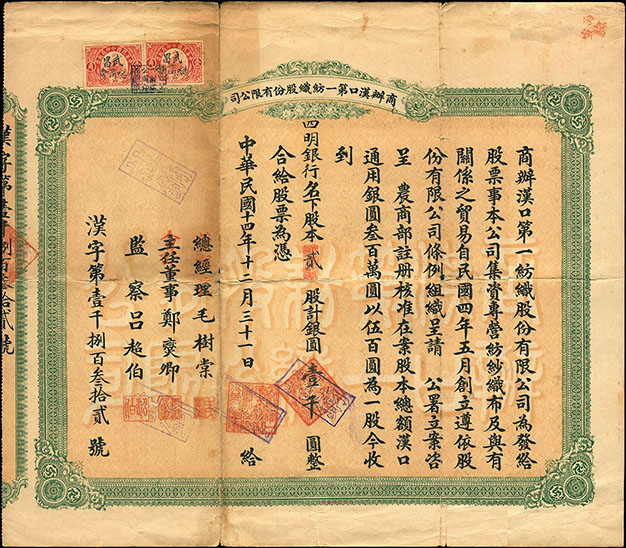 商辦漢口第一紡織股份有限公司
商辦漢口第一紡織股份有限公司為發給
股票事本公司集資專營紡紗織布及與有
關係之貿易自民國四年五月創立遵依股
份有限公司條例組織呈請 公署立案咨
呈 農商部註册核准在案股本總額漢口
通用銀圓叁百萬圓以伍百圓為一股今收
到
四明銀行名下股本貳股計銀圓壹千圓整
合給股票為憑
中華民國十四年十二月三十一日 給
總經理毛樹棠
主任董事鄭燮卿
監察呂超伯
漢字第壹千捌百叁拾貳號
漢字第壹千捌百叁拾貳號
武昌
武昌